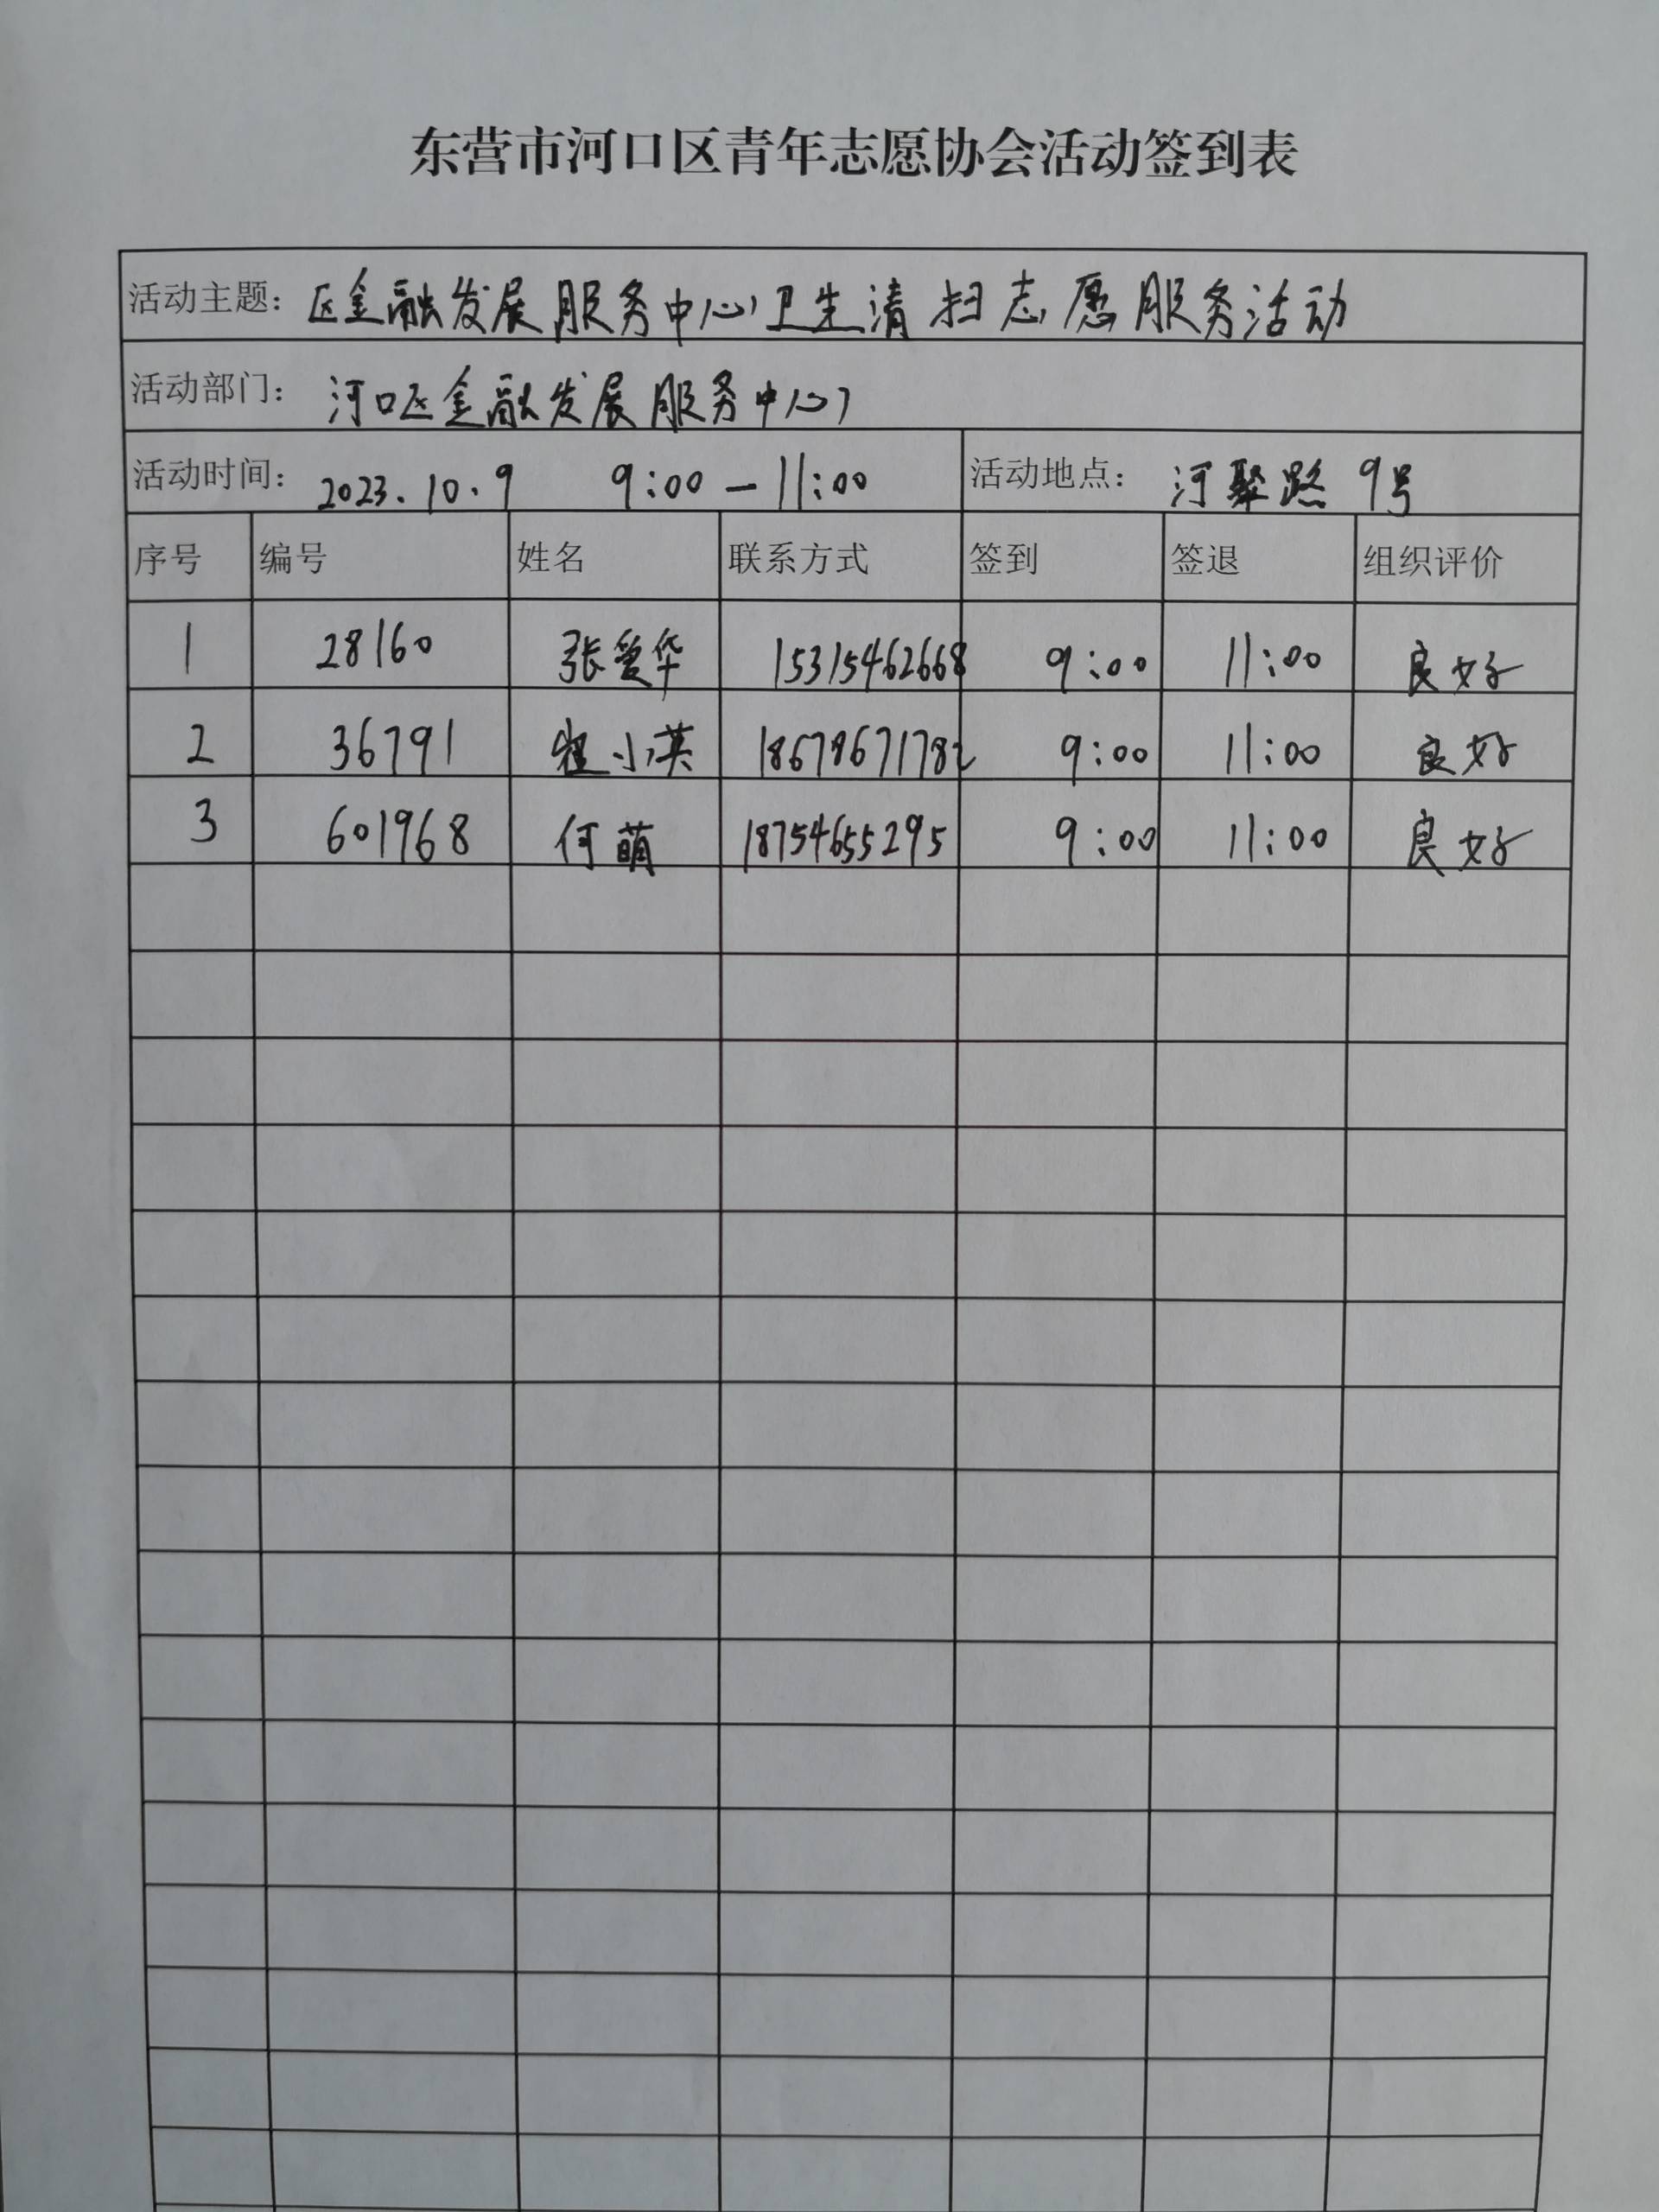 东营市河口区青年志愿协会活动签到表
活动主题: 区金融发展服务中心卫生清扫志愿服务活动
活动部门: 河口区金融发展服务中心
活动时间: 2023.10.9 9:00-11:00 活动地点: 河聚路9号
序号 编号 姓名 联系方式 签到 签退 组织评价
1 28160 张爱华 15315462668 9:00 11:00 良好
2 36791 小英 9:00 11:00 良好
3 601968 何萌 18754655295 9:00 11:00 良好